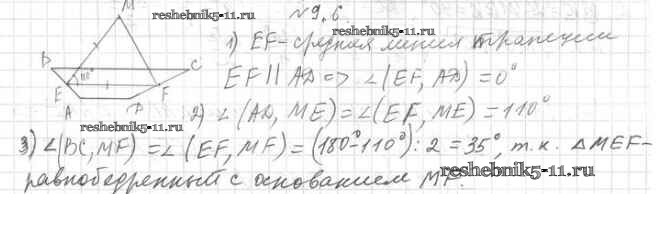 M
reshebnik5-11.ru
№9.6.
reshebnik5-11.ru
1) EF - средняя линия трапеции
B
C
110°
EF || AD => ∠(EF, AD) = 0°
E
F
A
D
2) ∠(AD, ME) = ∠(EF, ME) = 110°
reshebnik5-11.ru
3) ∠(BC, MF) = ∠(EF, MF) = (180° - 110°) : 2 = 35°, т.к. △MEF -
reshebnik5-11.ru
равнобедренный с основанием MF.